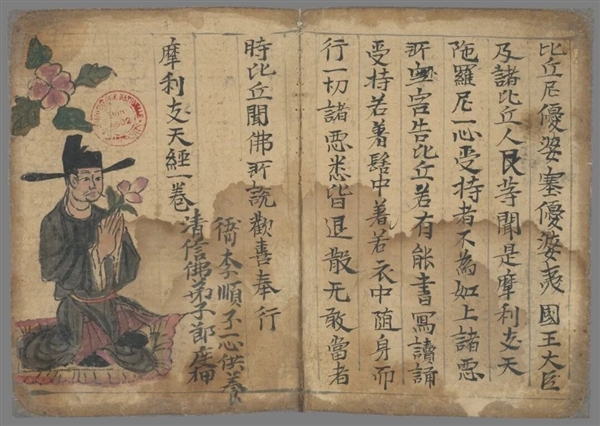 比丘尼優婆塞優婆夷 國王大臣
及諸比丘人民等聞是摩利支天
陁羅尼一心受持者不為如上諸惡
所害告比丘若有能書寫讀誦
受持若著髻中著若衣中随身而
行一切諸惡悉皆退散无敢當者
時比丘聞佛所說歡喜奉行
摩利支天經一卷
清信佛弟子節度押
衙李順子一心供養